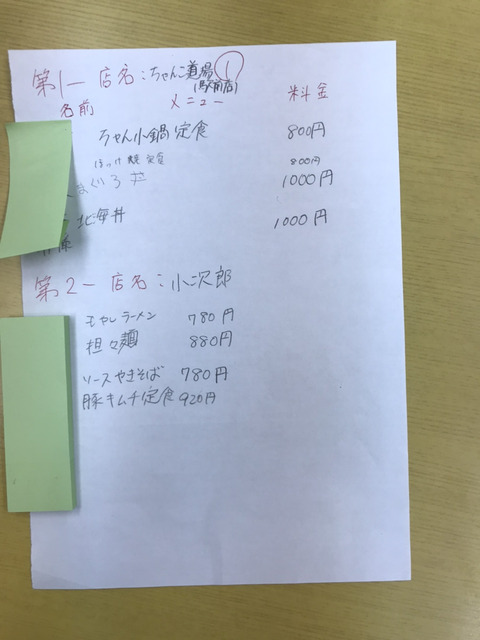 第1ー店名：ちゃんこ道場 ①
(駅前店)
名前 メニュー 料金
ちゃん小鍋定食 800円
ほっけ 定食 800円
まぐろ丼 1000円
北海丼 1000円
第2ー店名：小次郎
モヤシラーメン 780円
担々麺 880円
ソースやきそば 780円
豚キムチ定食 920円